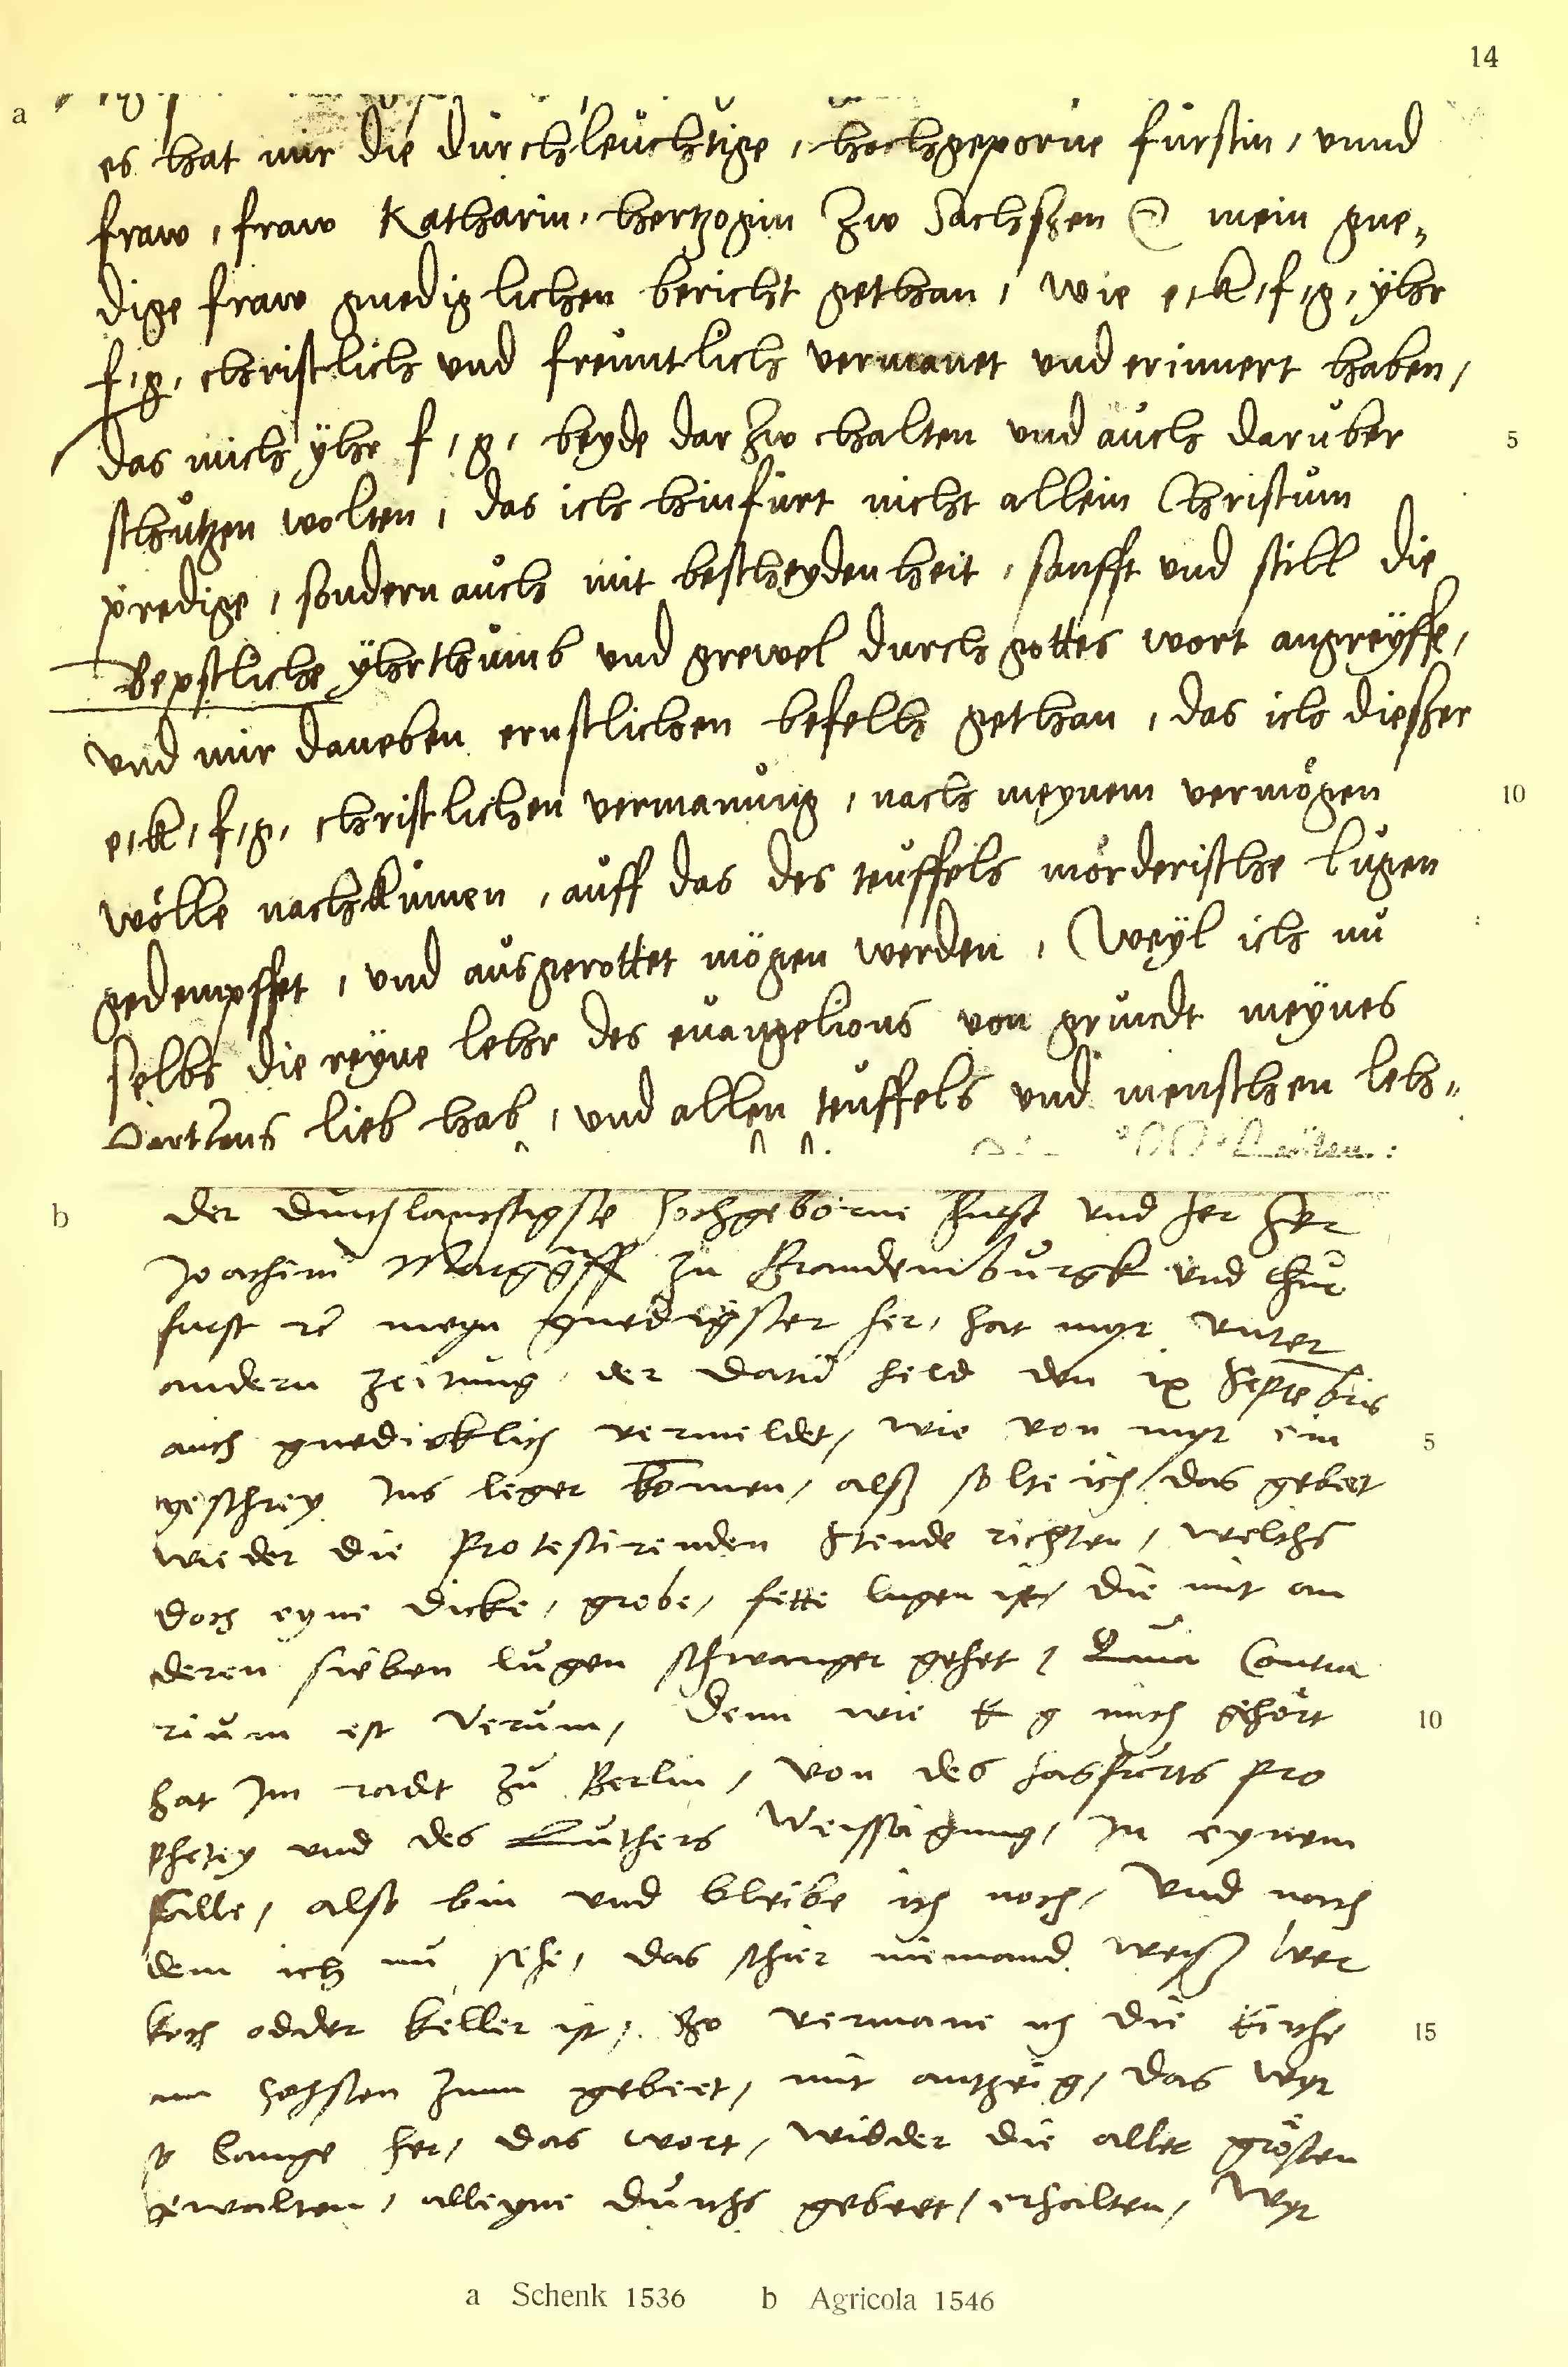 14
a
es hat mir die durchleuchtige, hochgeporne furstin, vnnd
fraw, fraw Katharin, hertzogin zw Sachsßen mein gne„
dige fraw gnediglichen bericht gethan, wie e,k,f,g, ÿhr
f,g, christlich vnd freuntlich vermanet vnd erinnert haben,
das mich ÿhr f,g, beyde darzw halten vnd auch daruber 5
schutzen wolten, das ich hinfurt nicht allein Christum
predige, sondern auch mit bescheydenheit, sanfft vnd still die
Bepstliche ÿhrthumb vnd grewel durch gottes wort angreÿffe,
vnd mir daneben ernstlichen befelh gethan, das ich dießer
e,k,f,g, christlichen vermanung, nach meynem vermögen 10
wölle nachkumen, auff das des teuffels mörderische lugen
gedempffet, vnd ausgerottet mögen werden, Weÿl ich nu
selbs die reÿne lehr des euangelions von grundt meÿnes
hertzens lieb hab, vnd allen teuffels vnd menschen leh„
b
der durchlauchtigste hochgeborne Furst vnd her her
Joachim Marggraff zu Brandemburgk vnd Chur
furst meyn gnedigster her, hat myr vnter
andern zeitung, der datū held den ix Septēbris
auch gnedicklich vermeldet, wie von myr ein 5
geschrey Ins leger komen, alß solte ich das gebeet
wieder die Protestirenden Stende richten, welchs
doch eyne dicke, grobe, fette lugen ist, die mit an
deren sieben lugen schwanger gehet, Contra
rium est Verum, Denn wie E g mich gehört 10
hat Im radt zu Berlin, von des hasfurts Pro
phetey vnd des Luthers Weissagung, In eynem
falle, also bin vnd bleibe ich noch, Vnd nach
dem ich nu sehe, das schier niemand weiß wer
koch odder keller ist, So vermane ich die Kirche 15
am hohsten zum gebeet, mit antzeig, das wyr
so lange her, das wort, widder die aller grösten
gwalten, alleyne durchs gebeet, erhalten, Wyr
a Schenk 1536 b Agricola 1546